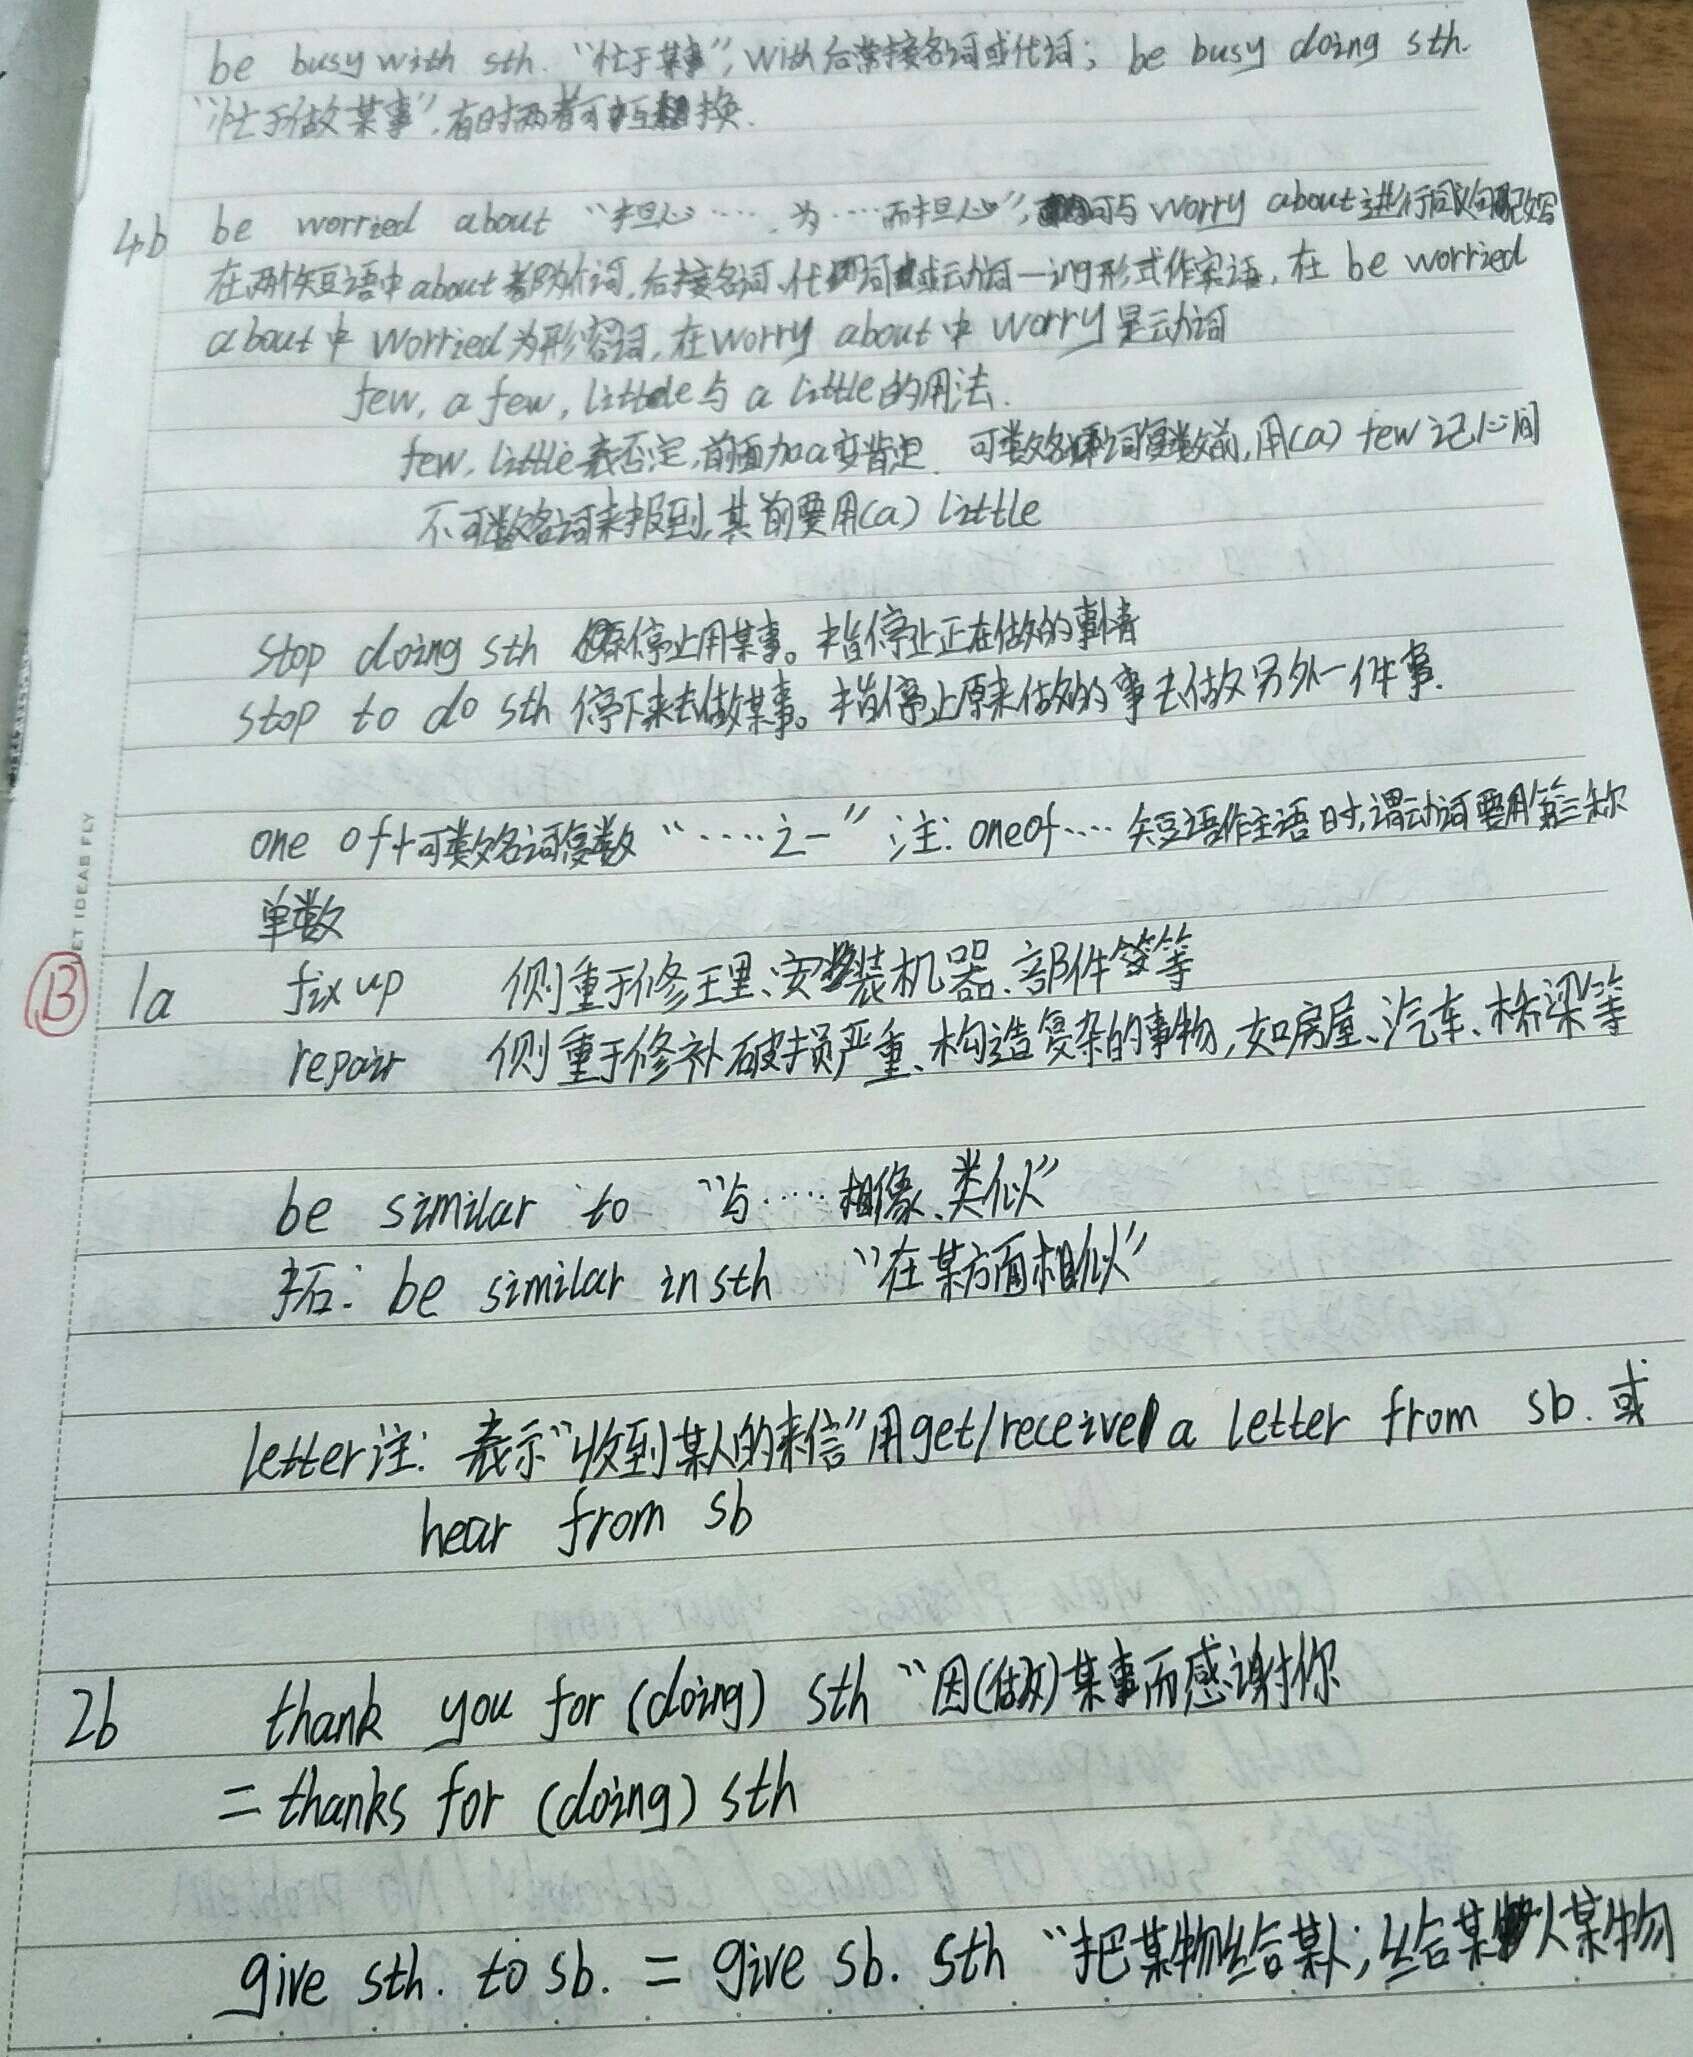 be busy with sth. “忙于某事”, with后常接名词或代词; be busy doing sth.
“忙于做某事”.有时两者可互换.
4b be worried about “担心……为……而担心”,可与worry about进行同义句
在两个短语中about都为介词,后接名词、代词或动词一ing形式作宾语,在be worried
about中worried为形容词,在worry about中worry是动词
few, a few, little与a little的用法.
few, little表否定,前面加a变肯定. 可数名词复数前,用(a) few记心间
不可数名词来报到,其前要用(a) little
stop doing sth 停止用某事。指停止正在做的事情
stop to do sth 停下来去做某事。指停止原来做的事去做另外一件事.
one of+可数名词复数 “……之一” 注: one of…… 短语作主语时,谓动词要用第三称
单数
ET IDEAS FLY
B 1a fix up 侧重于修理、安装机器、部件等等
repair 侧重于修补破损严重、构造复杂的事物,如房屋、汽车、桥梁等
be similar to “与……相像、类似”
拓: be similar in sth “在某方面相似”
letter注: 表示“收到某人的来信”用get/receive a letter from sb. 或
hear from sb
2b thank you for (doing) sth “因(做)某事而感谢你
= thanks for (doing) sth
give sth. to sb. = give sb. sth “把某物给某人; 给某人某物